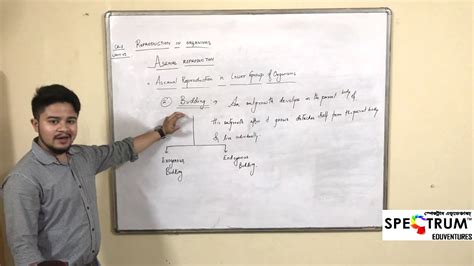 REPRODUCTION IN ORGANISMS
ASEXUAL REPRODUCTION
Asexual Reproduction in Lower Group of Organisms
Budding An outgrowth develops on the parent body
This outgrowth after it grows detaches itself from the parent body
& live individually
Exogenous Budding
Endogenous Budding
SPECTRUM
EDUVENTURES